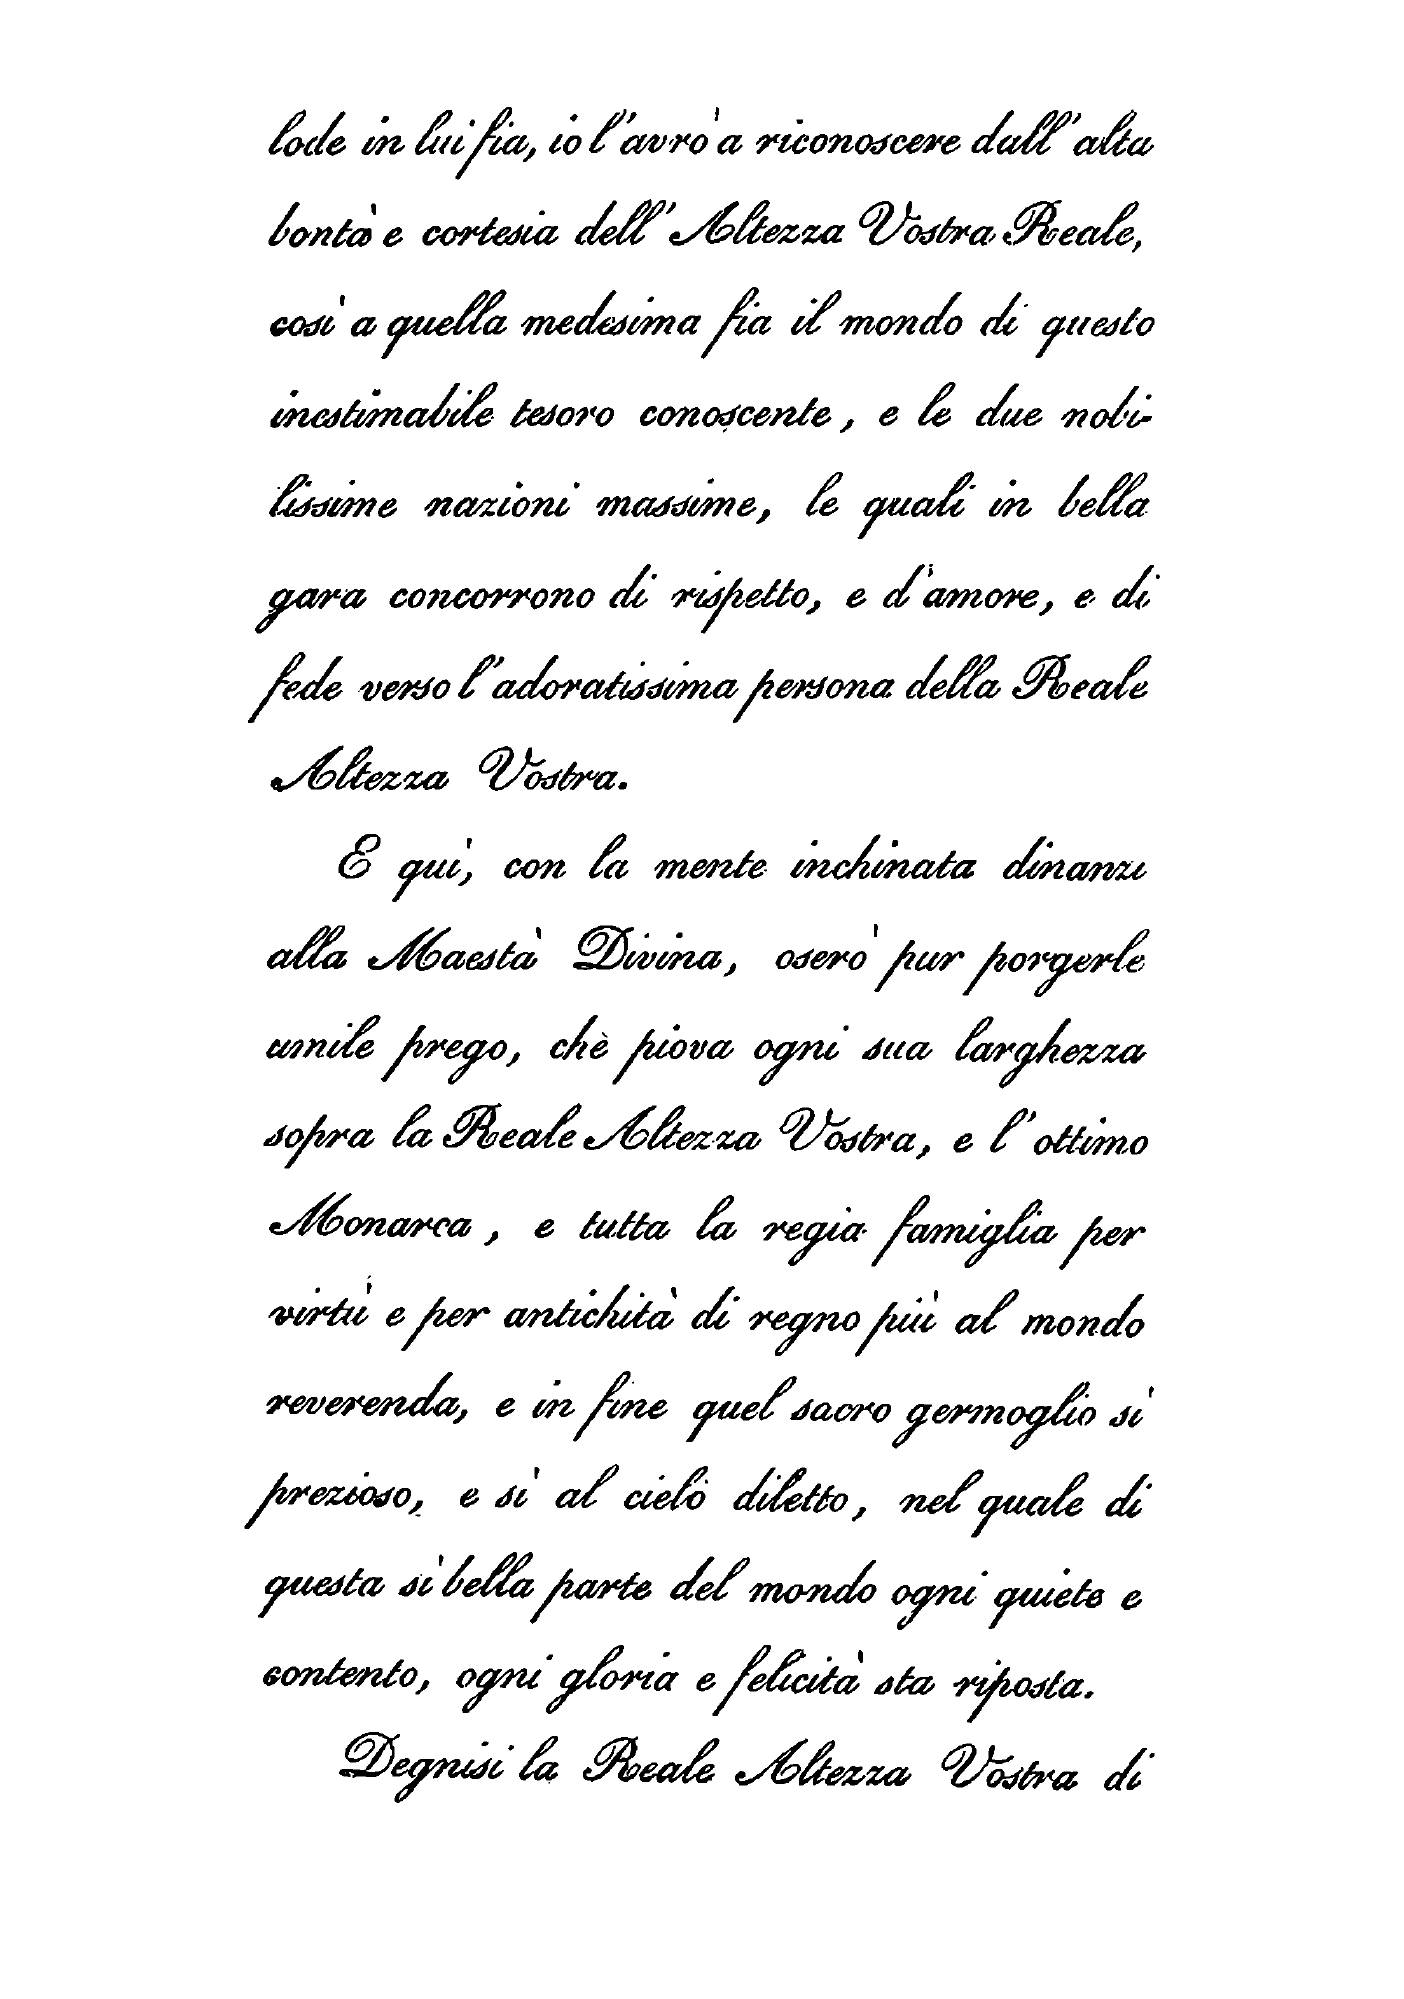 lode in lui fia, io l'avrò a riconoscere dall'alta
bontà e cortesia dell'Altezza Vostra Reale,
così a quella medesima fia il mondo di questo
inestimabile tesoro conoscente, e le due nobi-
lissime nazioni massime, le quali in bella
gara concorrono di rispetto, e d'amore, e di
fede verso l'adoratissima persona della Reale
Altezza Vostra.
E quì, con la mente inchinata dinanzi
alla Maestà Divina, oserò pur porgerle
umile prego, chè piova ogni sua larghezza
sopra la Reale Altezza Vostra, e l'ottimo
Monarca, e tutta la regia famiglia per
virtù e per antichità di regno più al mondo
reverenda, e in fine quel sacro germoglio sì
prezioso, e sì al cielo diletto, nel quale di
questa sì bella parte del mondo ogni quiete e
contento, ogni gloria e felicità sta riposta.
Degnisi la Reale Altezza Vostra di